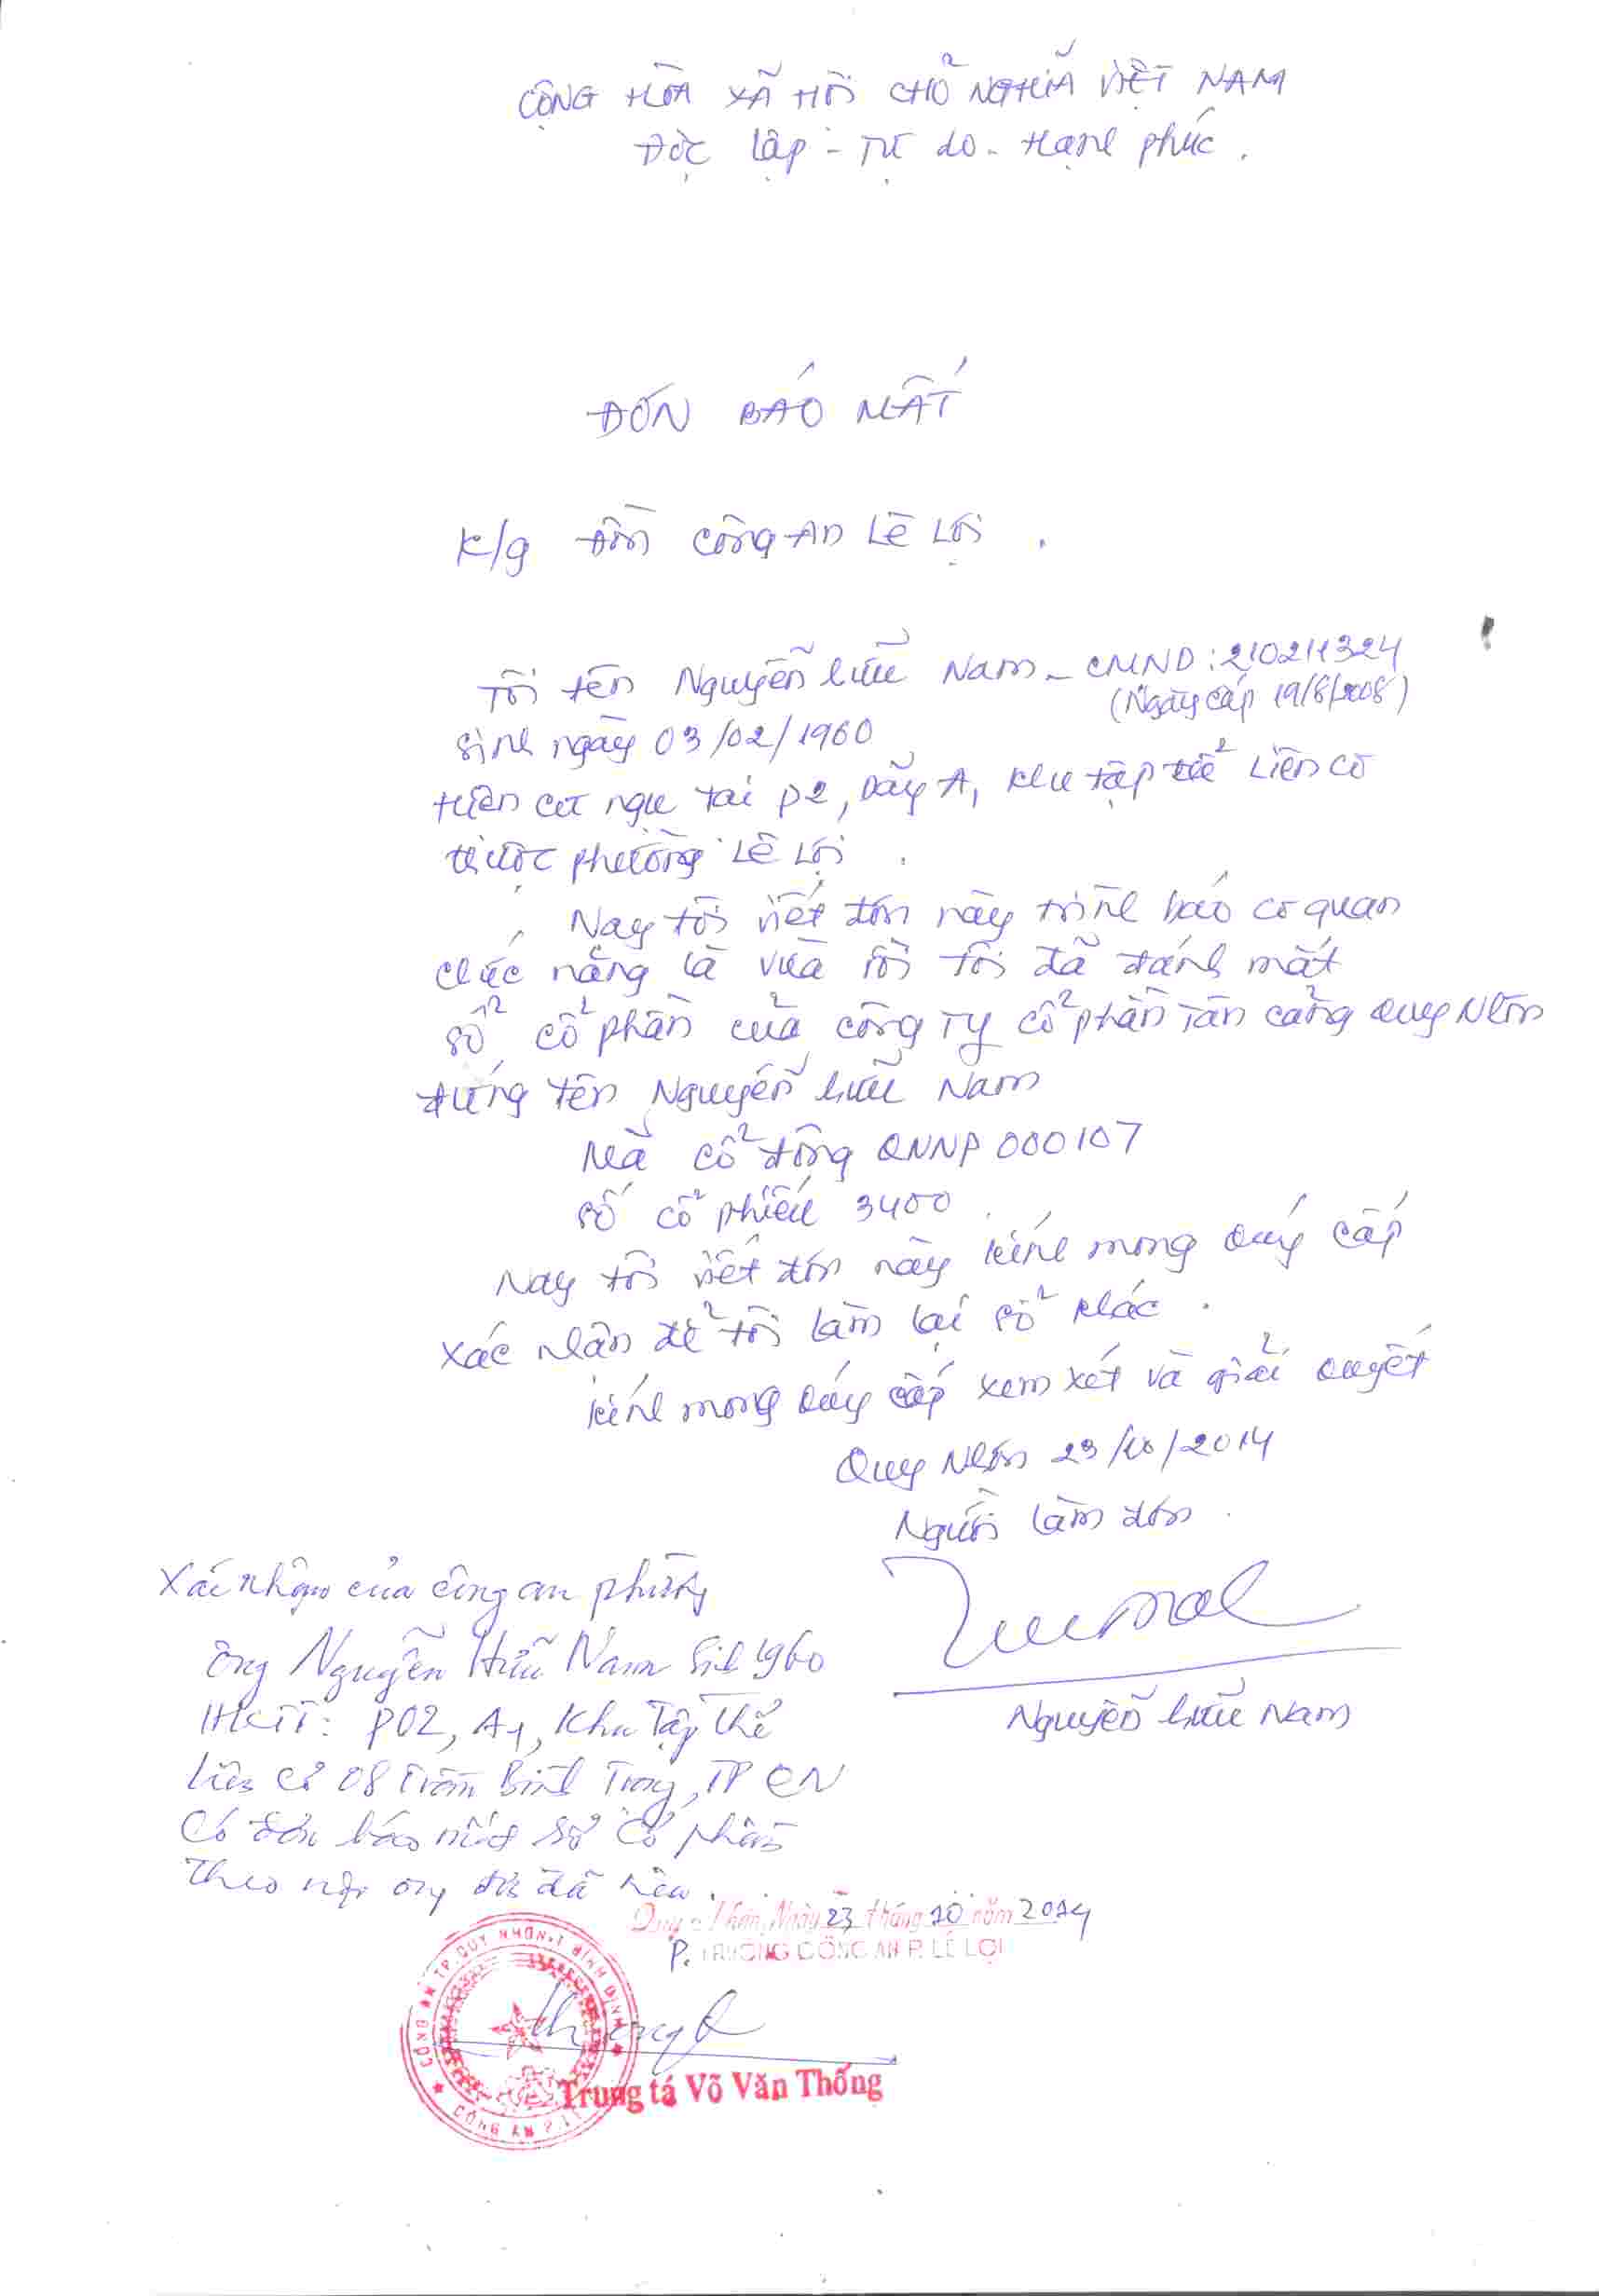 CỘNG HÒA XÃ HỘI CHỦ NGHĨA VIỆT NAM
Độc lập - Tự do - Hạnh phúc.
ĐƠN BÁO MẤT
K/g Đồn Công An Lê Lợi.
Tôi tên Nguyễn Hữu Nam - CMND: 210211324
(Ngày cấp 19/8/2008)
Sinh ngày 03/02/1960
Hiện cư ngụ tại P2, Dãy A, Khu tập thể Liên cơ
thuộc phường Lê Lợi.
Nay tôi viết đơn này trình báo cơ quan
chức năng là vừa rồi tôi đã đánh mất
sổ cổ phần của Công Ty cổ phần Tân cảng Quy Nhơn
đứng tên Nguyễn Hữu Nam
Mã cổ đông QNNP 000107
số cổ phiếu 3400.
Nay tôi viết đơn này kính mong Quý cấp
xác nhận để tôi làm lại sổ khác.
Kính mong Quý cấp xem xét và giải quyết
Quy Nhơn 23/10/2014
Người làm đơn.
Nguyễn Hữu Nam
Xác nhận của công an phường
Ông Nguyễn Hữu Nam Sinh 1960
HKTT: P02, A1, Khu Tập thể
Liên Cơ 08 Trần Bình Trọng, TP QN
Có đơn báo mất sổ cổ phần
Theo nội dung đơn đã nêu.
Quy Nhơn, Ngày 23 tháng 10 năm 2014
P. TRƯỞNG CÔNG AN P. LÊ LỢI
CÔNG AN TP. QUY NHƠN T. BÌNH ĐỊNH
CÔNG AN P.
Trung tá Võ Văn Thống